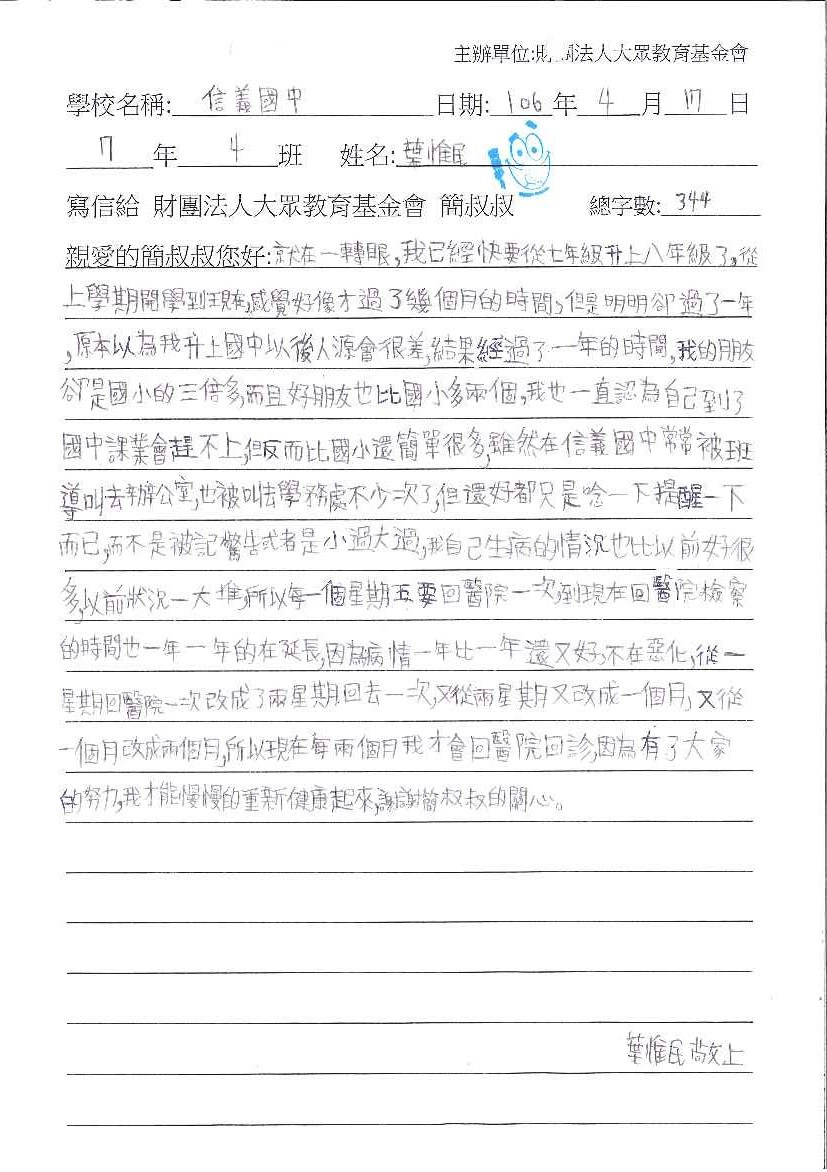 主辦單位:財團法人大眾教育基金會
學校名稱: 信義國中 日期: 106 年 4 月 17 日
7 年 4 班 姓名: 葉惟民
寫信給 財團法人大眾教育基金會 簡叔叔 總字數: 344
親愛的簡叔叔您好:就在一轉眼,我已經快要從七年級升上八年級了,從
上學期開學到現在,感覺好像才過了幾個月的時間,但是明明卻過了一年
,原本以為我升上國中以後人源會很差,結果經過了一年的時間,我的朋友
卻是國小的三倍多,而且好朋友也比國小多兩個,我也一直認為自己到了
國中課業會趕不上,但反而比國小還簡單很多,雖然在信義國中常常被班
導叫去辦公室,也被叫去學務處不少次了,但還好都只是唸一下提醒一下
而已,而不是被記警告或者是小過大過,我自己生病的情況也比以前好很
多,以前狀況一大堆,所以每一個星期五要回醫院一次,到現在回醫院檢察
的時間也一年一年的在延長,因為病情一年比一年還又好,不在惡化,從一
星期回醫院一次改成了兩星期回去一次,又從兩星期又改成一個月,又從
一個月改成兩個月,所以現在每兩個月我才會回醫院回診,因為有了大家
的努力,我才能慢慢的重新健康起來,謝謝簡叔叔的關心。
葉惟民敬上